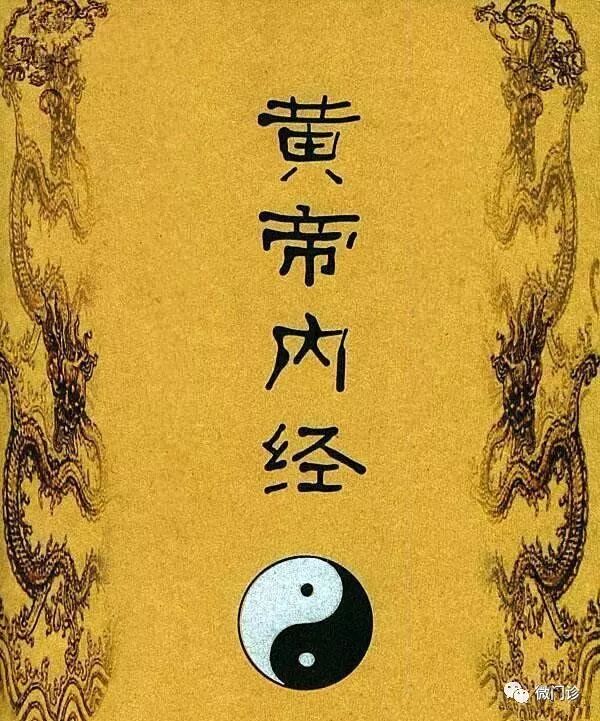 黄帝内经
微门诊